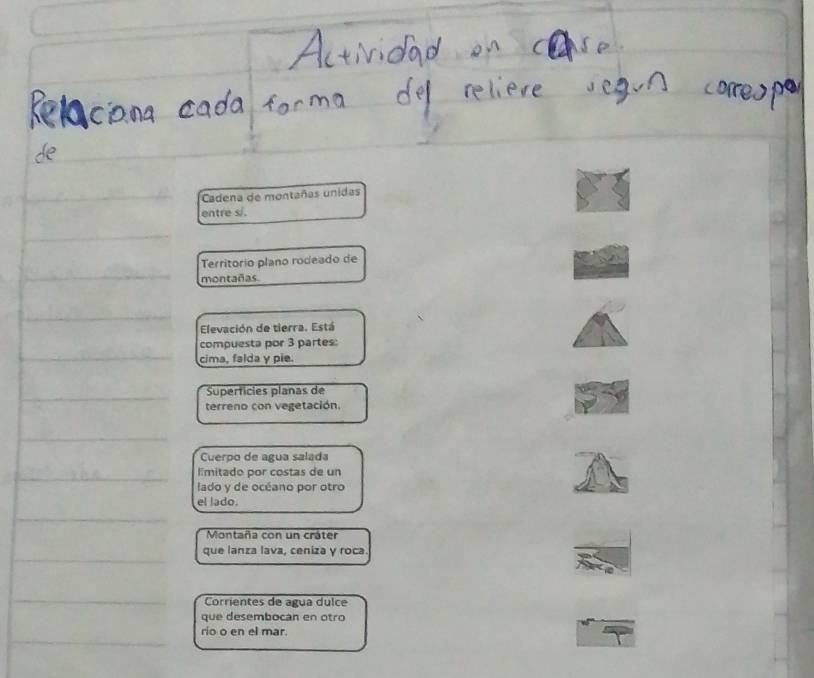 Actividad en clase
Relaciona cada forma del relieve segun correspon
de
Cadena de montañas unidas
entre sí.
Territorio plano rodeado de
montañas.
Elevación de tierra. Está
compuesta por 3 partes:
cima, falda y pie.
Superficies planas de
terreno con vegetación.
Cuerpo de agua salada
limitado por costas de un
lado y de océano por otro
el lado.
Montaña con un cráter
que lanza lava, ceniza y roca.
Corrientes de agua dulce
que desembocan en otro
río o en el mar.